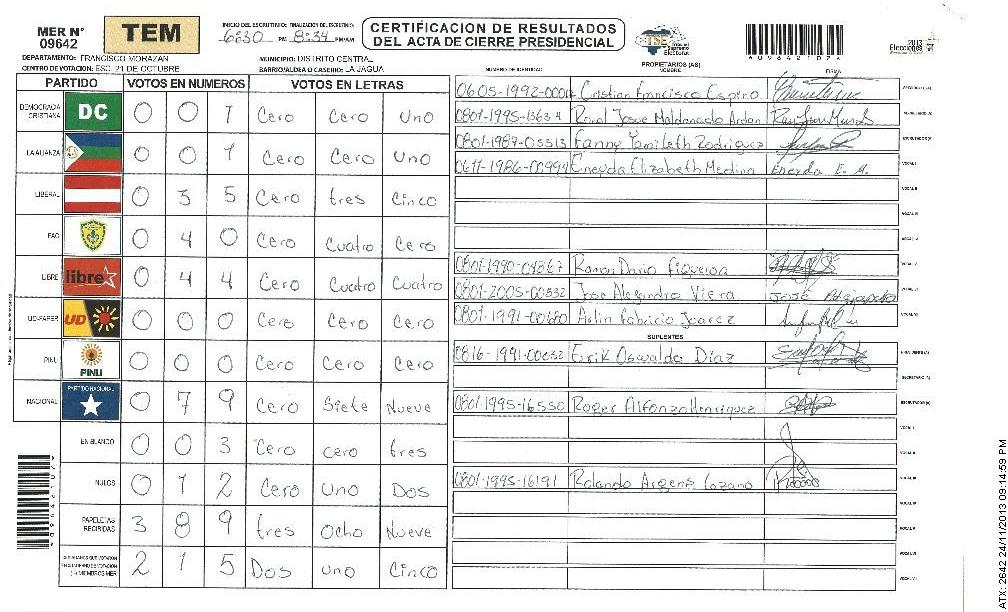 MER Nº
09642
TEM
INICIO DEL ESCRUTINIO: FINALIZACION DEL ESCRUTINIO:
6:30 PM 8:34 PM/AM
CERTIFICACION DE RESULTADOS
DEL ACTA DE CIERRE PRESIDENCIAL
TSE Tribunal Supremo Electoral
2013
Elecciones
DEPARTAMENTO: FRANCISCO MORAZAN
MUNICIPIO: DISTRITO CENTRAL
CENTRO DE VOTACION: ESC. 21 DE OCTUBRE
BARRIO/ALDEA O CASERIO: LA JAGUA
NUMERO DE IDENTIDAD
PROPIETARIOS (AS)
NOMBRE
FIRMA
PARTIDO VOTOS EN NUMEROS VOTOS EN LETRAS
DEMOCRACIA CRISTIANA DC 0 0 1 Cero Cero Uno
LA ALIANZA 0 0 1 Cero Cero Uno
LIBERAL 0 3 5 Cero tres Cinco
PAC 0 4 0 Cero Cuatro Cero
LIBRE libre 0 4 4 Cero Cuatro Cuatro
UD-FAPER UD 0 0 0 Cero Cero Cero
PINU PINU 0 0 0 Cero Cero Cero
NACIONAL PARTIDO NACIONAL 0 7 9 Cero Siete Nueve
EN BLANCO 0 0 3 Cero cero tres
NULOS 0 1 2 Cero uno Dos
PAPELETAS RECIBIDAS 3 8 9 tres Ocho Nueve
CIUDADANOS QUE VOTARON 2 1 5 Dos uno Cinco
MIEMBROS MER
0605-1992-0004 Cristian Francisco Espino
0801-1995-13634 Ronal Josue Maldonado Ardon
0801-1987-05513 Fanny Yamileth Rodriguez
0611-1986-00994 Eneyda Elizabeth Medina Eneyda E. M.
0801-1990-04867 Ramon Dario Figueroa
0801-2005-00832 Jose Alejandro Viera JOSE
0801-1991-00680 Arlin Fabricio Juarez
SUPLENTES
0816-1991-00032 Erik Oswaldo Diaz
0801-1995-16550 Roger Alfonzo Henriquez
0801-1995-16191 Rolando Argenis Lozano
ATX: 2642 24/11/2013 09:14:59 PM